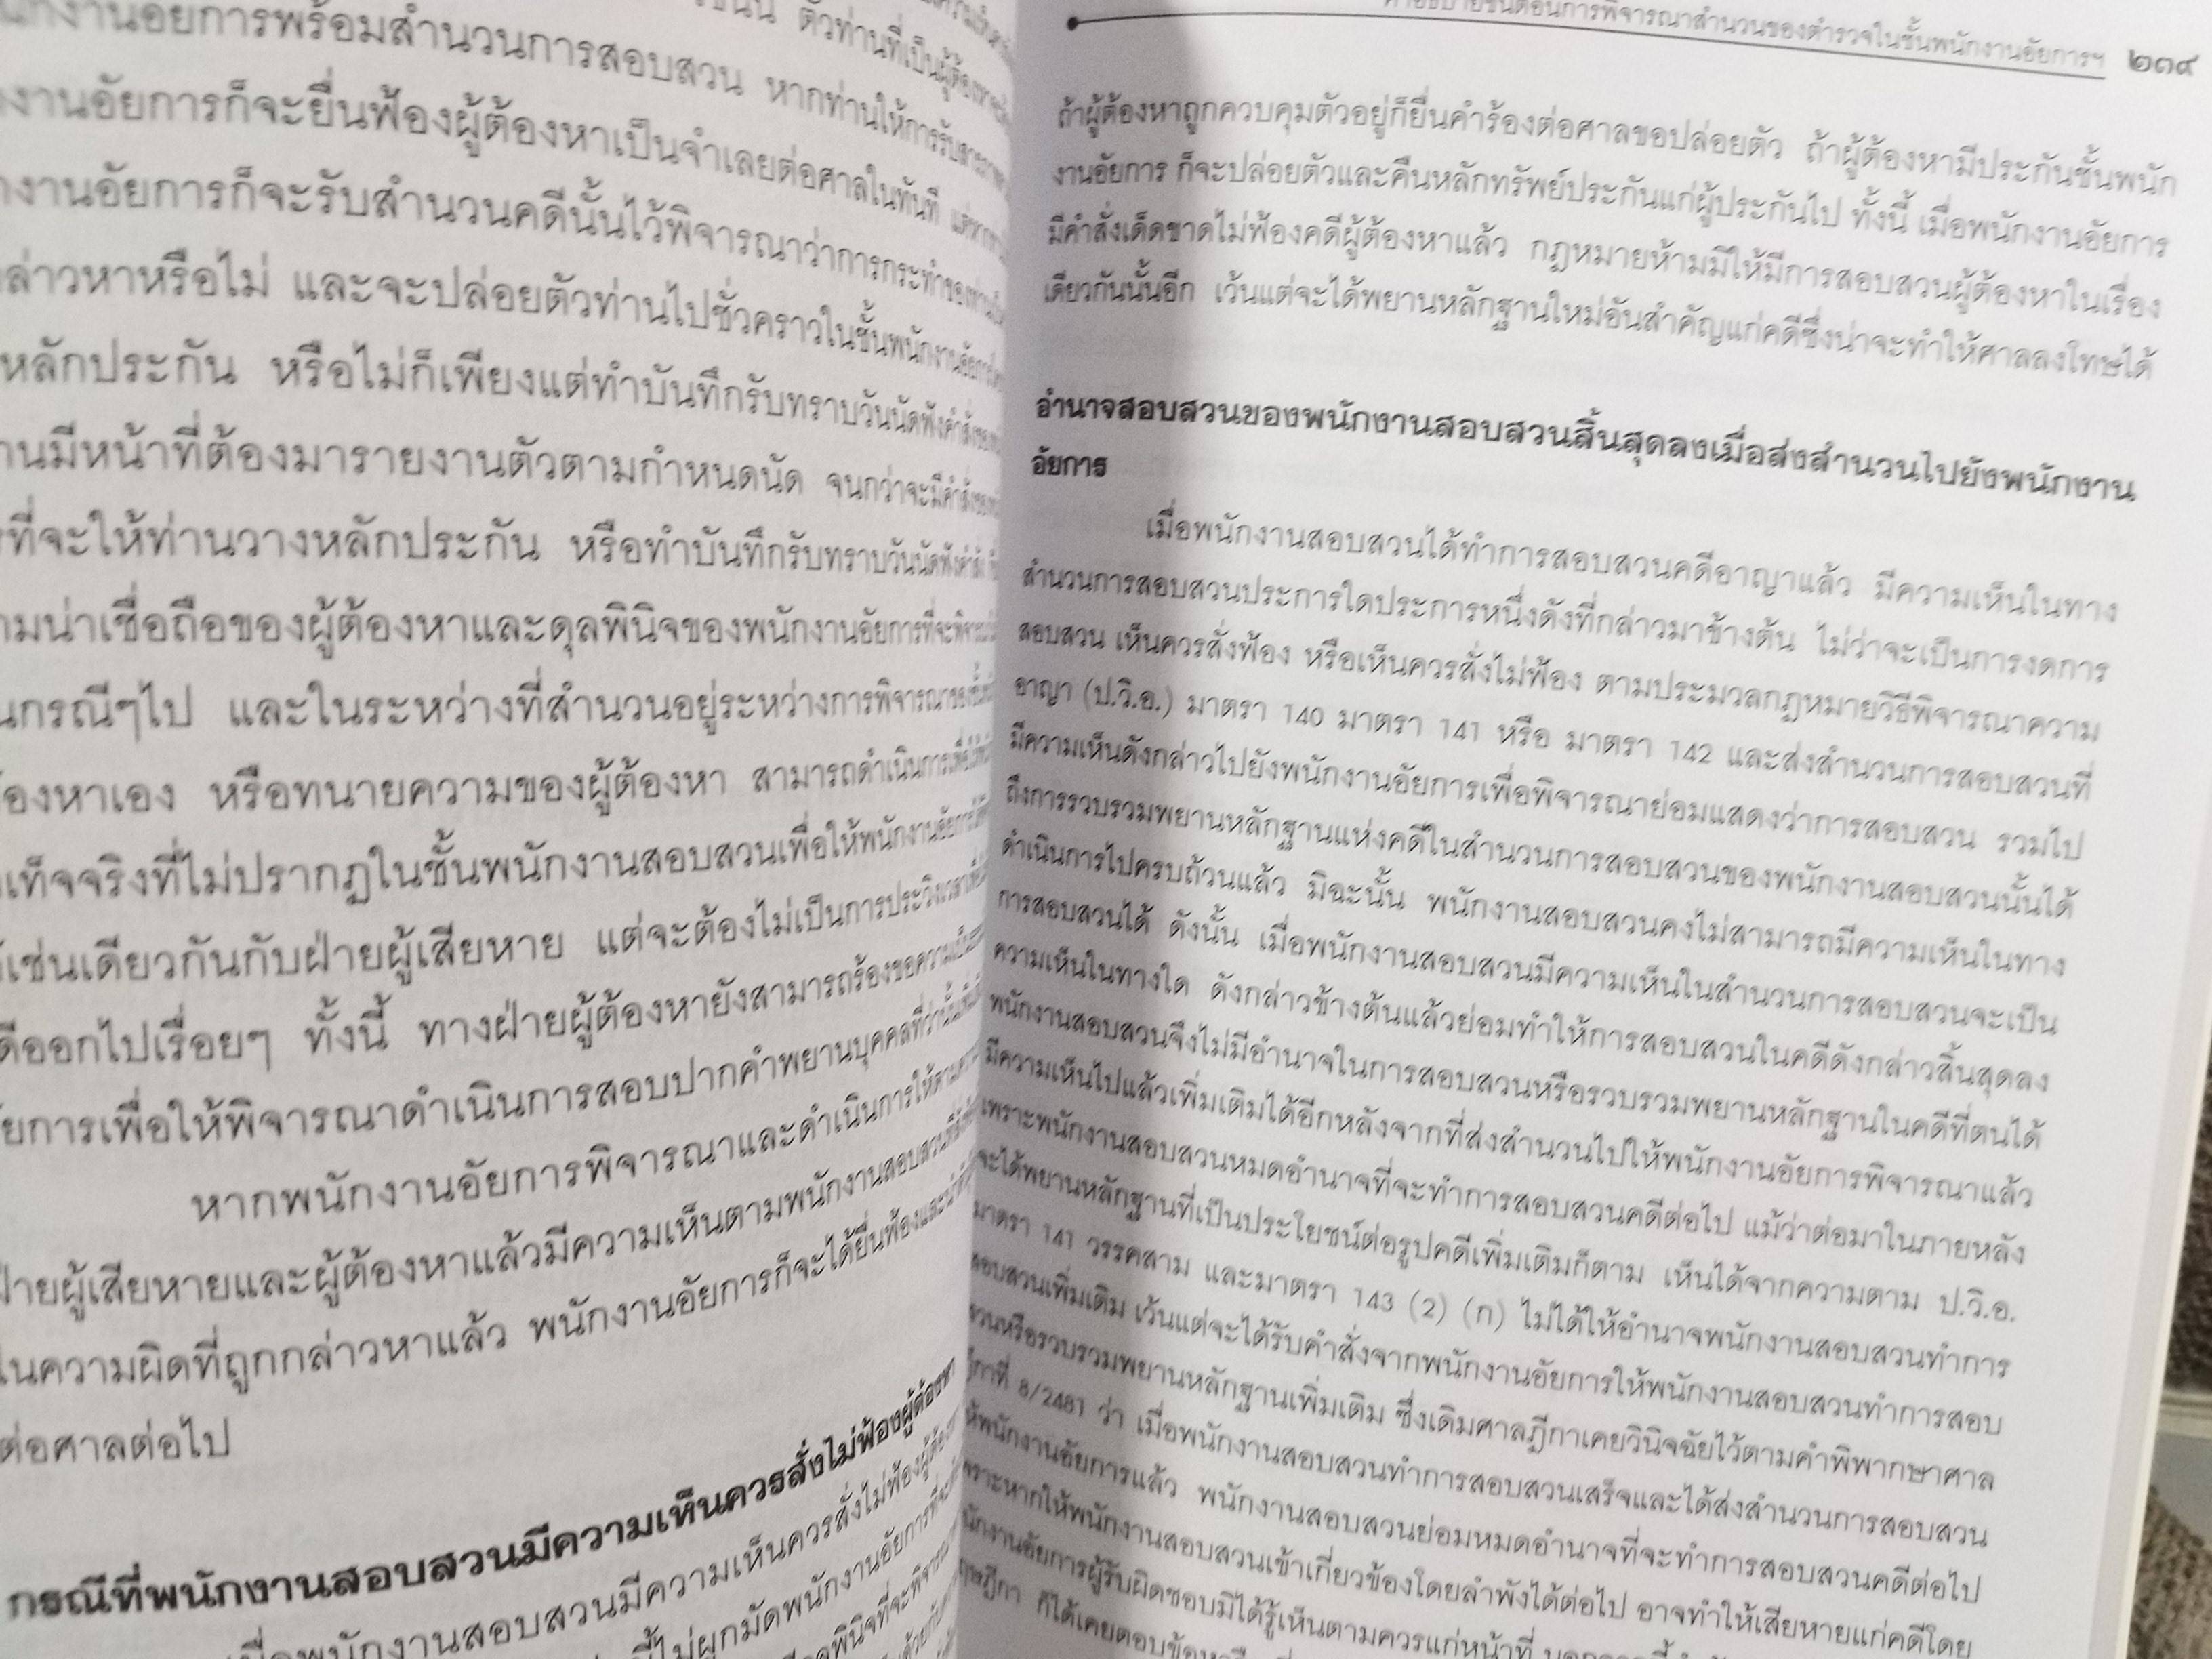 ตัวท่านที่เป็นผู้ต้องหา
งานอัยการพร้อมสำนวนการสอบสวน หากท่านให้การรับสารภาพ
งานอัยการก็จะยื่นฟ้องผู้ต้องหาเป็นจำเลยต่อศาลในทันที
งานอัยการก็จะรับสำนวนคดีนั้นไว้พิจารณาว่าการกระทำของท่านเป็น
กล่าวหาหรือไม่ และจะปล่อยตัวท่านไปชั่วคราวในชั้นพนักงานอัยการ
หลักประกัน หรือไม่ก็เพียงแต่ทำบันทึกรับทราบวันนัดฟังคำสั่ง
านมีหน้าที่ต้องมารายงานตัวตามกำหนดนัด จนกว่าจะมีคำสั่ง
ที่จะให้ท่านวางหลักประกัน หรือทำบันทึกรับทราบวันนัดฟังคำสั่ง
ามน่าเชื่อถือของผู้ต้องหาและดุลพินิจของพนักงานอัยการที่จะพิจารณา
นกรณีๆไป และในระหว่างที่สำนวนอยู่ระหว่างการพิจารณา
องหาเอง หรือทนายความของผู้ต้องหา สามารถดำเนินการ
เท็จจริงที่ไม่ปรากฏในชั้นพนักงานสอบสวนเพื่อให้พนักงานอัยการ
เช่นเดียวกันกับฝ่ายผู้เสียหาย แต่จะต้องไม่เป็นการประวิงเวลา
ดีออกไปเรื่อยๆ ทั้งนี้ ทางฝ่ายผู้ต้องหายังสามารถร้องขอความเป็นธรรม
ัยการเพื่อให้พิจารณาดำเนินการสอบปากคำพยานบุคคลที่ว่านั้น
หากพนักงานอัยการพิจารณาและดำเนินการให้ตาม
ฝ่ายผู้เสียหายและผู้ต้องหาแล้วมีความเห็นตามพนักงานสอบสวน
ในความผิดที่ถูกกล่าวหาแล้ว พนักงานอัยการก็จะได้ยื่นฟ้องและนำตัว
ต่อศาลต่อไป
กรณีที่พนักงานสอบสวนมีความเห็นควรสั่งไม่ฟ้องผู้ต้องหา
เมื่อพนักงานสอบสวนมีความเห็นควรสั่งไม่ฟ้องผู้ต้องหา
นี้ไม่ผูกมัดพนักงานอัยการที่จะ
คำอธิบายขั้นตอนการพิจารณาสำนวนของตำรวจในชั้นพนักงานอัยการฯ ๒๓๙
ถ้าผู้ต้องหาถูกควบคุมตัวอยู่ก็ยื่นคำร้องต่อศาลขอปล่อยตัว ถ้าผู้ต้องหามีประกันชั้นพนัก
งานอัยการ ก็จะปล่อยตัวและคืนหลักทรัพย์ประกันแก่ผู้ประกันไป ทั้งนี้ เมื่อพนักงานอัยการ
มีคำสั่งเด็ดขาดไม่ฟ้องคดีผู้ต้องหาแล้ว กฎหมายห้ามมิให้มีการสอบสวนผู้ต้องหาในเรื่อง
เดียวกันนั้นอีก เว้นแต่จะได้พยานหลักฐานใหม่อันสำคัญแก่คดีซึ่งน่าจะทำให้ศาลลงโทษได้
อำนาจสอบสวนของพนักงานสอบสวนสิ้นสุดลงเมื่อส่งสำนวนไปยังพนักงาน
อัยการ
เมื่อพนักงานสอบสวนได้ทำการสอบสวนคดีอาญาแล้ว มีความเห็นในทาง
สำนวนการสอบสวนประการใดประการหนึ่งดังที่กล่าวมาข้างต้น ไม่ว่าจะเป็นการงดการ
สอบสวน เห็นควรสั่งฟ้อง หรือเห็นควรสั่งไม่ฟ้อง ตามประมวลกฎหมายวิธีพิจารณาความ
อาญา (ป.วิ.อ.) มาตรา 140 มาตรา 141 หรือ มาตรา 142 และส่งสำนวนการสอบสวนที่
มีความเห็นดังกล่าวไปยังพนักงานอัยการเพื่อพิจารณาย่อมแสดงว่าการสอบสวน รวมไป
ถึงการรวบรวมพยานหลักฐานแห่งคดีในสำนวนการสอบสวนของพนักงานสอบสวนนั้นได้
ดำเนินการไปครบถ้วนแล้ว มิฉะนั้น พนักงานสอบสวนคงไม่สามารถมีความเห็นในทาง
การสอบสวนได้ ดังนั้น เมื่อพนักงานสอบสวนมีความเห็นในสำนวนการสอบสวนจะเป็น
ความเห็นในทางใด ดังกล่าวข้างต้นแล้วย่อมทำให้การสอบสวนในคดีดังกล่าวสิ้นสุดลง
พนักงานสอบสวนจึงไม่มีอำนาจในการสอบสวนหรือรวบรวมพยานหลักฐานในคดีที่ตนได้
มีความเห็นไปแล้วเพิ่มเติมได้อีกหลังจากที่ส่งสำนวนไปให้พนักงานอัยการพิจารณาแล้ว
เพราะพนักงานสอบสวนหมดอำนาจที่จะทำการสอบสวนคดีต่อไป แม้ว่าต่อมาในภายหลัง
จะได้พยานหลักฐานที่เป็นประโยชน์ต่อรูปคดีเพิ่มเติมก็ตาม เห็นได้จากความตาม ป.วิ.อ.
มาตรา 141 วรรคสาม และมาตรา 143 (2) (ก) ไม่ได้ให้อำนาจพนักงานสอบสวนทำการ
สอบสวนเพิ่มเติม เว้นแต่จะได้รับคำสั่งจากพนักงานอัยการให้พนักงานสอบสวนทำการสอบ
สวนหรือรวบรวมพยานหลักฐานเพิ่มเติม ซึ่งเดิมศาลฎีกาเคยวินิจฉัยไว้ตามคำพิพากษาศาล
ฎีกาที่ 8/2481 ว่า เมื่อพนักงานสอบสวนทำการสอบสวนเสร็จและได้ส่งสำนวนการสอบสวน
ให้พนักงานอัยการแล้ว พนักงานสอบสวนย่อมหมดอำนาจที่จะทำการสอบสวนคดีต่อไป
เพราะหากให้พนักงานสอบสวนเข้าเกี่ยวข้องโดยลำพังได้ต่อไป อาจทำให้เสียหายแก่คดีโดย
พนักงานอัยการผู้รับผิดชอบมิได้รู้เห็นตามควรแก่หน้าที่ นอกจากนี้
กฤษฎีกา ก็ได้เคยตอบข้อหารือ